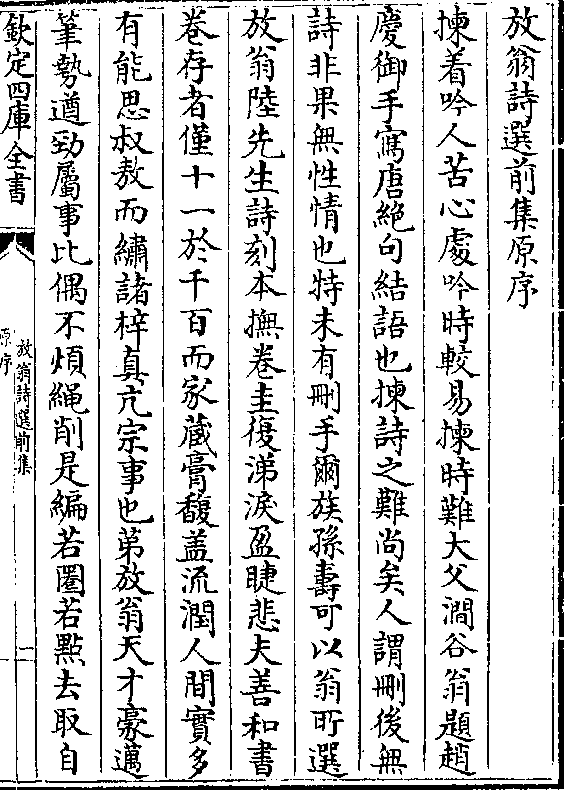 放翁詩選前集原序
揀着吟人苦心處吟時較易揀時難大父澗谷翁題趙
慶御手寫唐絕句結語也揀詩之難尚矣人謂刪後無
詩非果無性情也特未有刪手爾族孫壽可以翁所選
放翁陸先生詩刻本撫卷圭復涕淚盈睫悲夫善和書
卷存者僅十一於千百而家藏膏馥蓋流潤人間實多
有能思叔敖而繡諸梓真亢宗事也第放翁天才豪邁
筆勢遒勁屬事比偶不煩繩削是編若圈若點去取自
欽定四庫全書
放翁詩選前集
原序
一